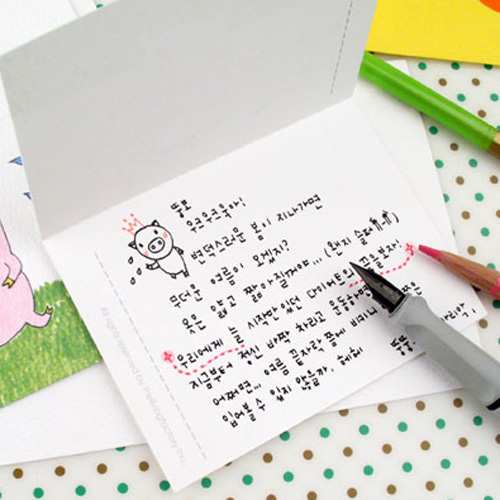 뚱뽀
우크우크욱아!
변덕스러운 봄이 지나가면
무더운 여름이 오겠지?
옷은 얇고 짧아질꺼야... (왠지 슬퍼ㅠㅠ)
우리에게 늘 시작만 있던 다이어트의 끝을보자!
지금부터 정신 바짝 차리고 운동하면
어쩌면... 여름 끝자락 쯤에 비키니
입어볼수 있지 않을까, 헤헤
뚱뚱.
All rights reserved by